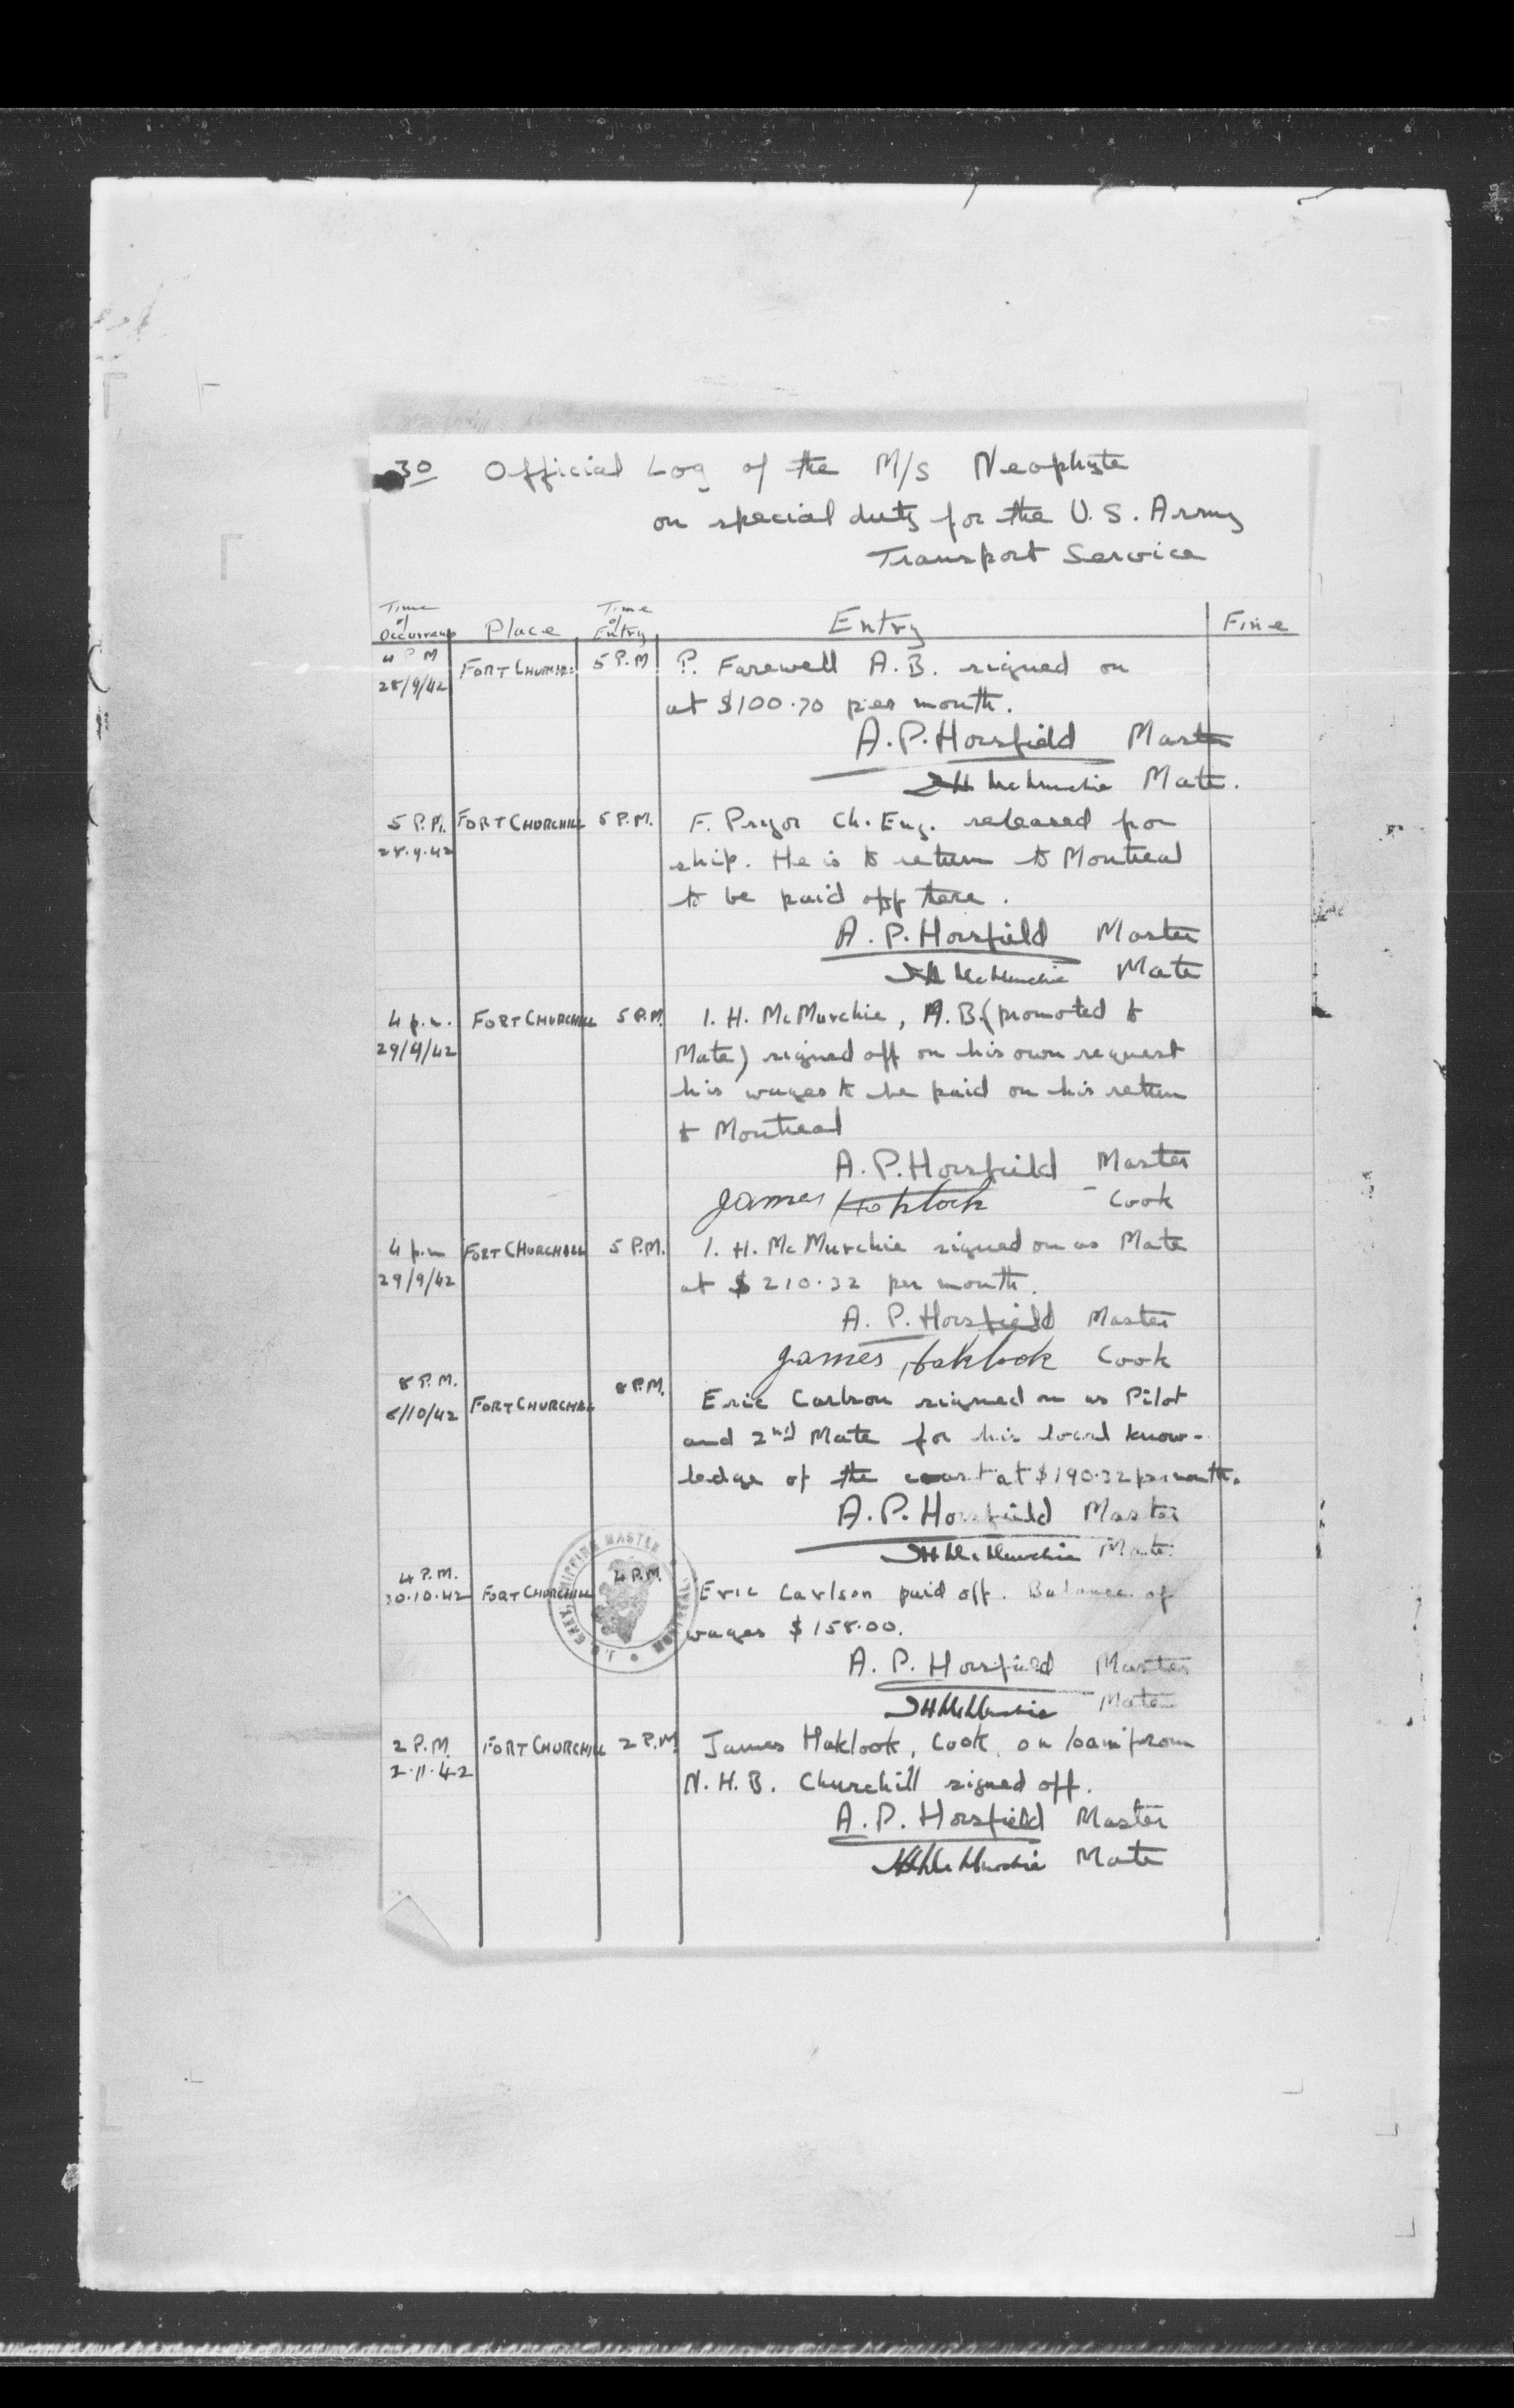 30 Official Log of the M/S Neophyte
on special duty for the U.S. Army
Transport Service
Time of Occurrence Place Time of Entry Entry Fine
4 P M FORT CHURCHILL 5 P.M P. Farewell A.B. signed on
28/9/42 at $100.70 per month.
A.P. Horsfield Master
IH McMurchie Mate.
5 P.M. FORT CHURCHILL 5 P.M. F. Pryor Ch. Eng. released from
28.9.42 ship. He is to return to Montreal
to be paid off there.
A.P. Horsfield Master
IH McMurchie Mate
4 p.m. FORT CHURCHILL 5 P.M. I. H. McMurchie, A.B. (promoted to
29/9/42 Mate) signed off on his own request
his wages to be paid on his return
to Montreal
A.P. Horsfield Master
James Haklook - Cook
4 p.m FORT CHURCHILL 5 P.M. I. H. McMurchie signed on as Mate
29/9/42 at $210.32 per month.
A. P. Horsfield Master
James Haklook Cook
8 P.M. FORT CHURCHILL 8 P.M. Eric Carlson signed on as Pilot
6/10/42 and 2nd Mate for his local know-
ledge of the coast at $190.32 per month.
A.P. Horsfield Master
IH McMurchie Mate.
4 P.M. FORT CHURCHILL 4 P.M. Eric Carlson paid off. Balance of
30.10.42 wages $158.00.
SHIPPING MASTER MONTREAL
A. P. Horsfield Master
IH McMurchie Mate
2 P.M. FORT CHURCHILL 2 P.M James Haklook, Cook, on loan from
2.11.42 N.H.B. Churchill signed off.
A.P. Horsfield Master
IH McMurchie Mate